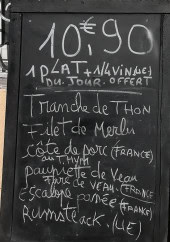 10,€90
1 PLAT + 1/4 VIN (UE)
DU JOUR OFFERT
Tranche de THON
Filet de Merlu
côte de porc (FRANCE)
au THYM
paupiette de Veau
FARCE DE VEAU (FRANCE)
Escalope panée (FRANCE)
Rumsteack (UE)